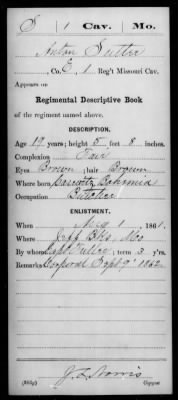 S | 1 | Cav. | Mo.
Anton Sutter
, Co. E, 1 Reg't Missouri Cav.
Appears on
Regimental Descriptive Book
of the regiment named above.
DESCRIPTION.
Age 19 years; height 5 feet 8 inches.
Complexion Fair
Eyes Brown; hair Brown
Where born Bohemia
Occupation Butcher
ENLISTMENT.
When Aug 1, 1861.
Where Jeff Bks, Mo
By whom Capt Fuller; term 3 y'rs.
Remarks Corporal Sept 9" 1862
J. L. Norris
(383g) Copyist.